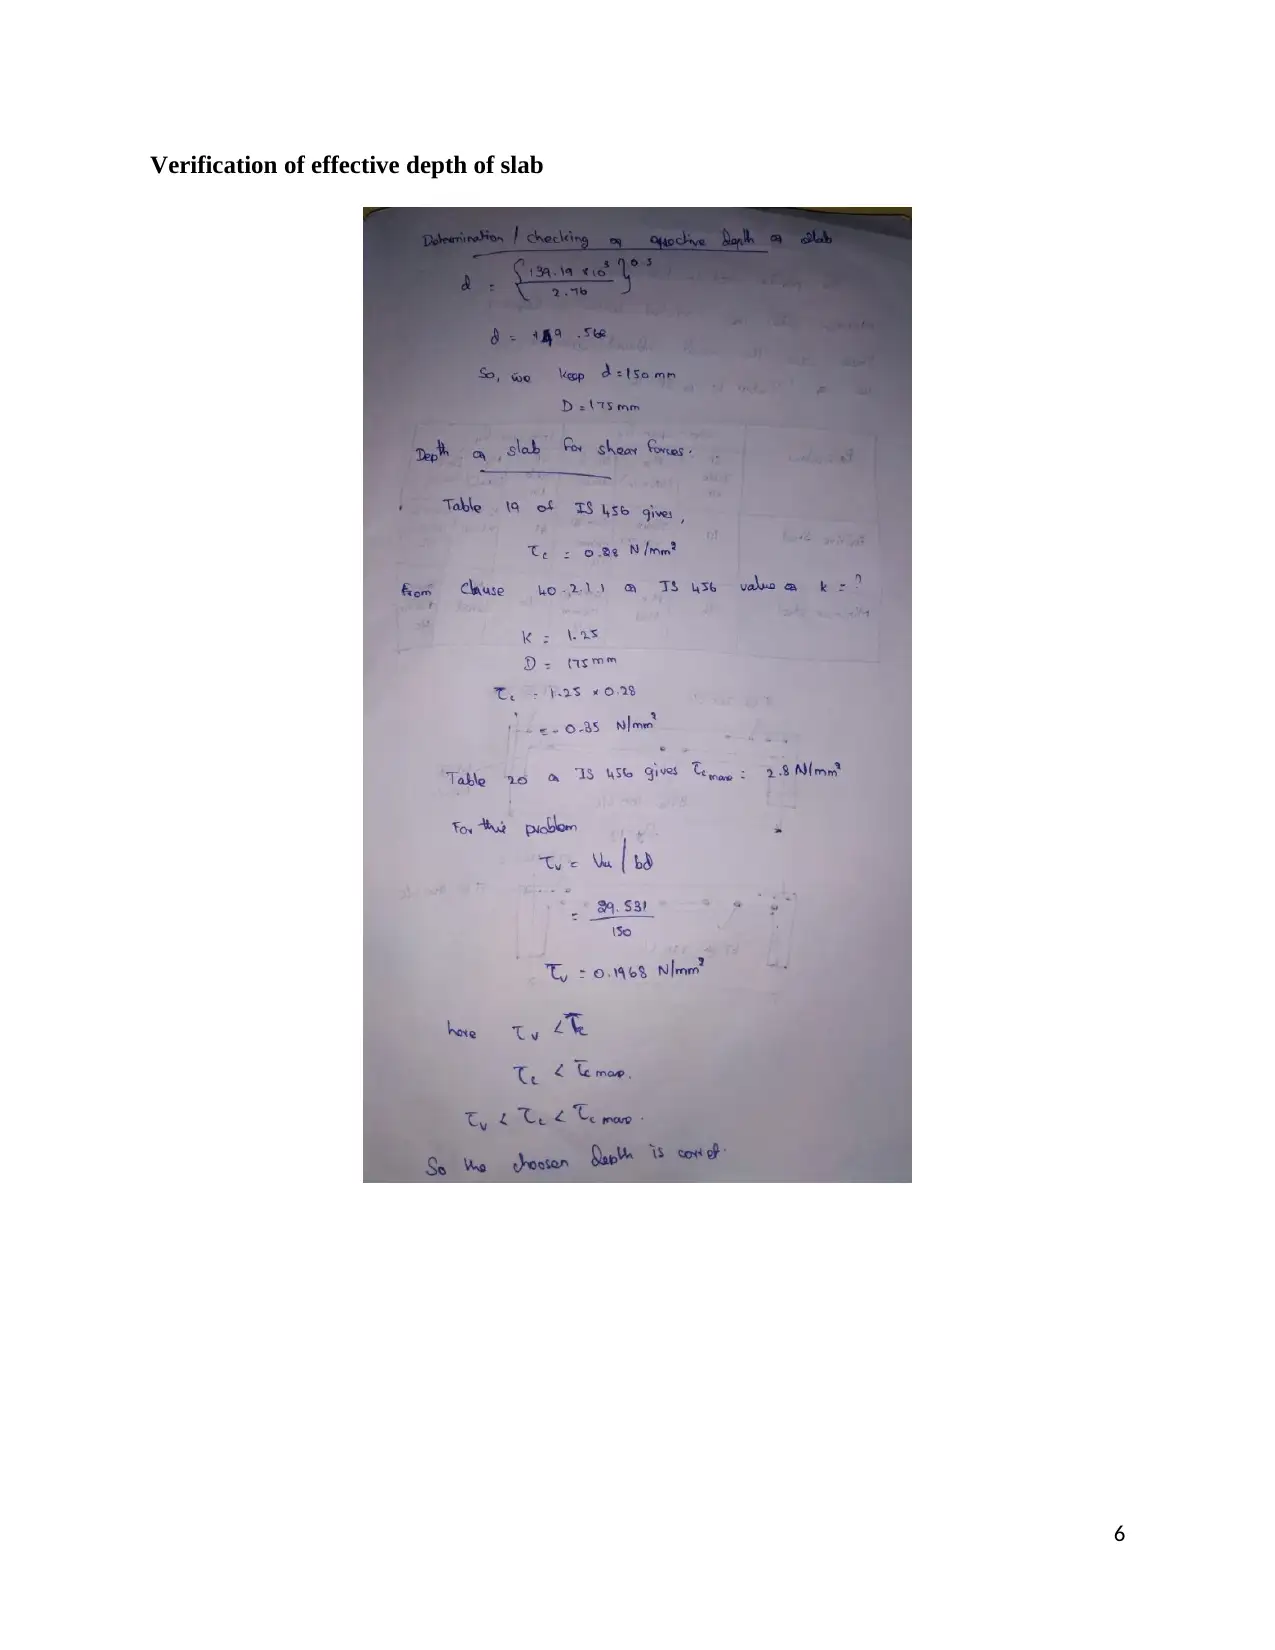 Verification of effective depth of slab
Determination / checking of effective depth of slab
d = {139.19 × 10³ / 2.76}^0.5
d = .568
So, we keep d = 150 mm
D = 175 mm
Depth of slab for shear forces.
Table 19 of IS 456 gives,
τc = 0.28 N/mm²
From Clause 40.2.1.1 of IS 456 value of k = ?
K = 1.25
D = 175 mm
τc = 1.25 × 0.28
= 0.35 N/mm²
Table 20 of IS 456 gives τc max = 2.8 N/mm²
For this problem
τv = Vu / bd
= 29.531 / 150
τv = 0.1968 N/mm²
here τv < τc
τc < τc max.
τv < τc < τc max.
So the choosen depth is corret.
6